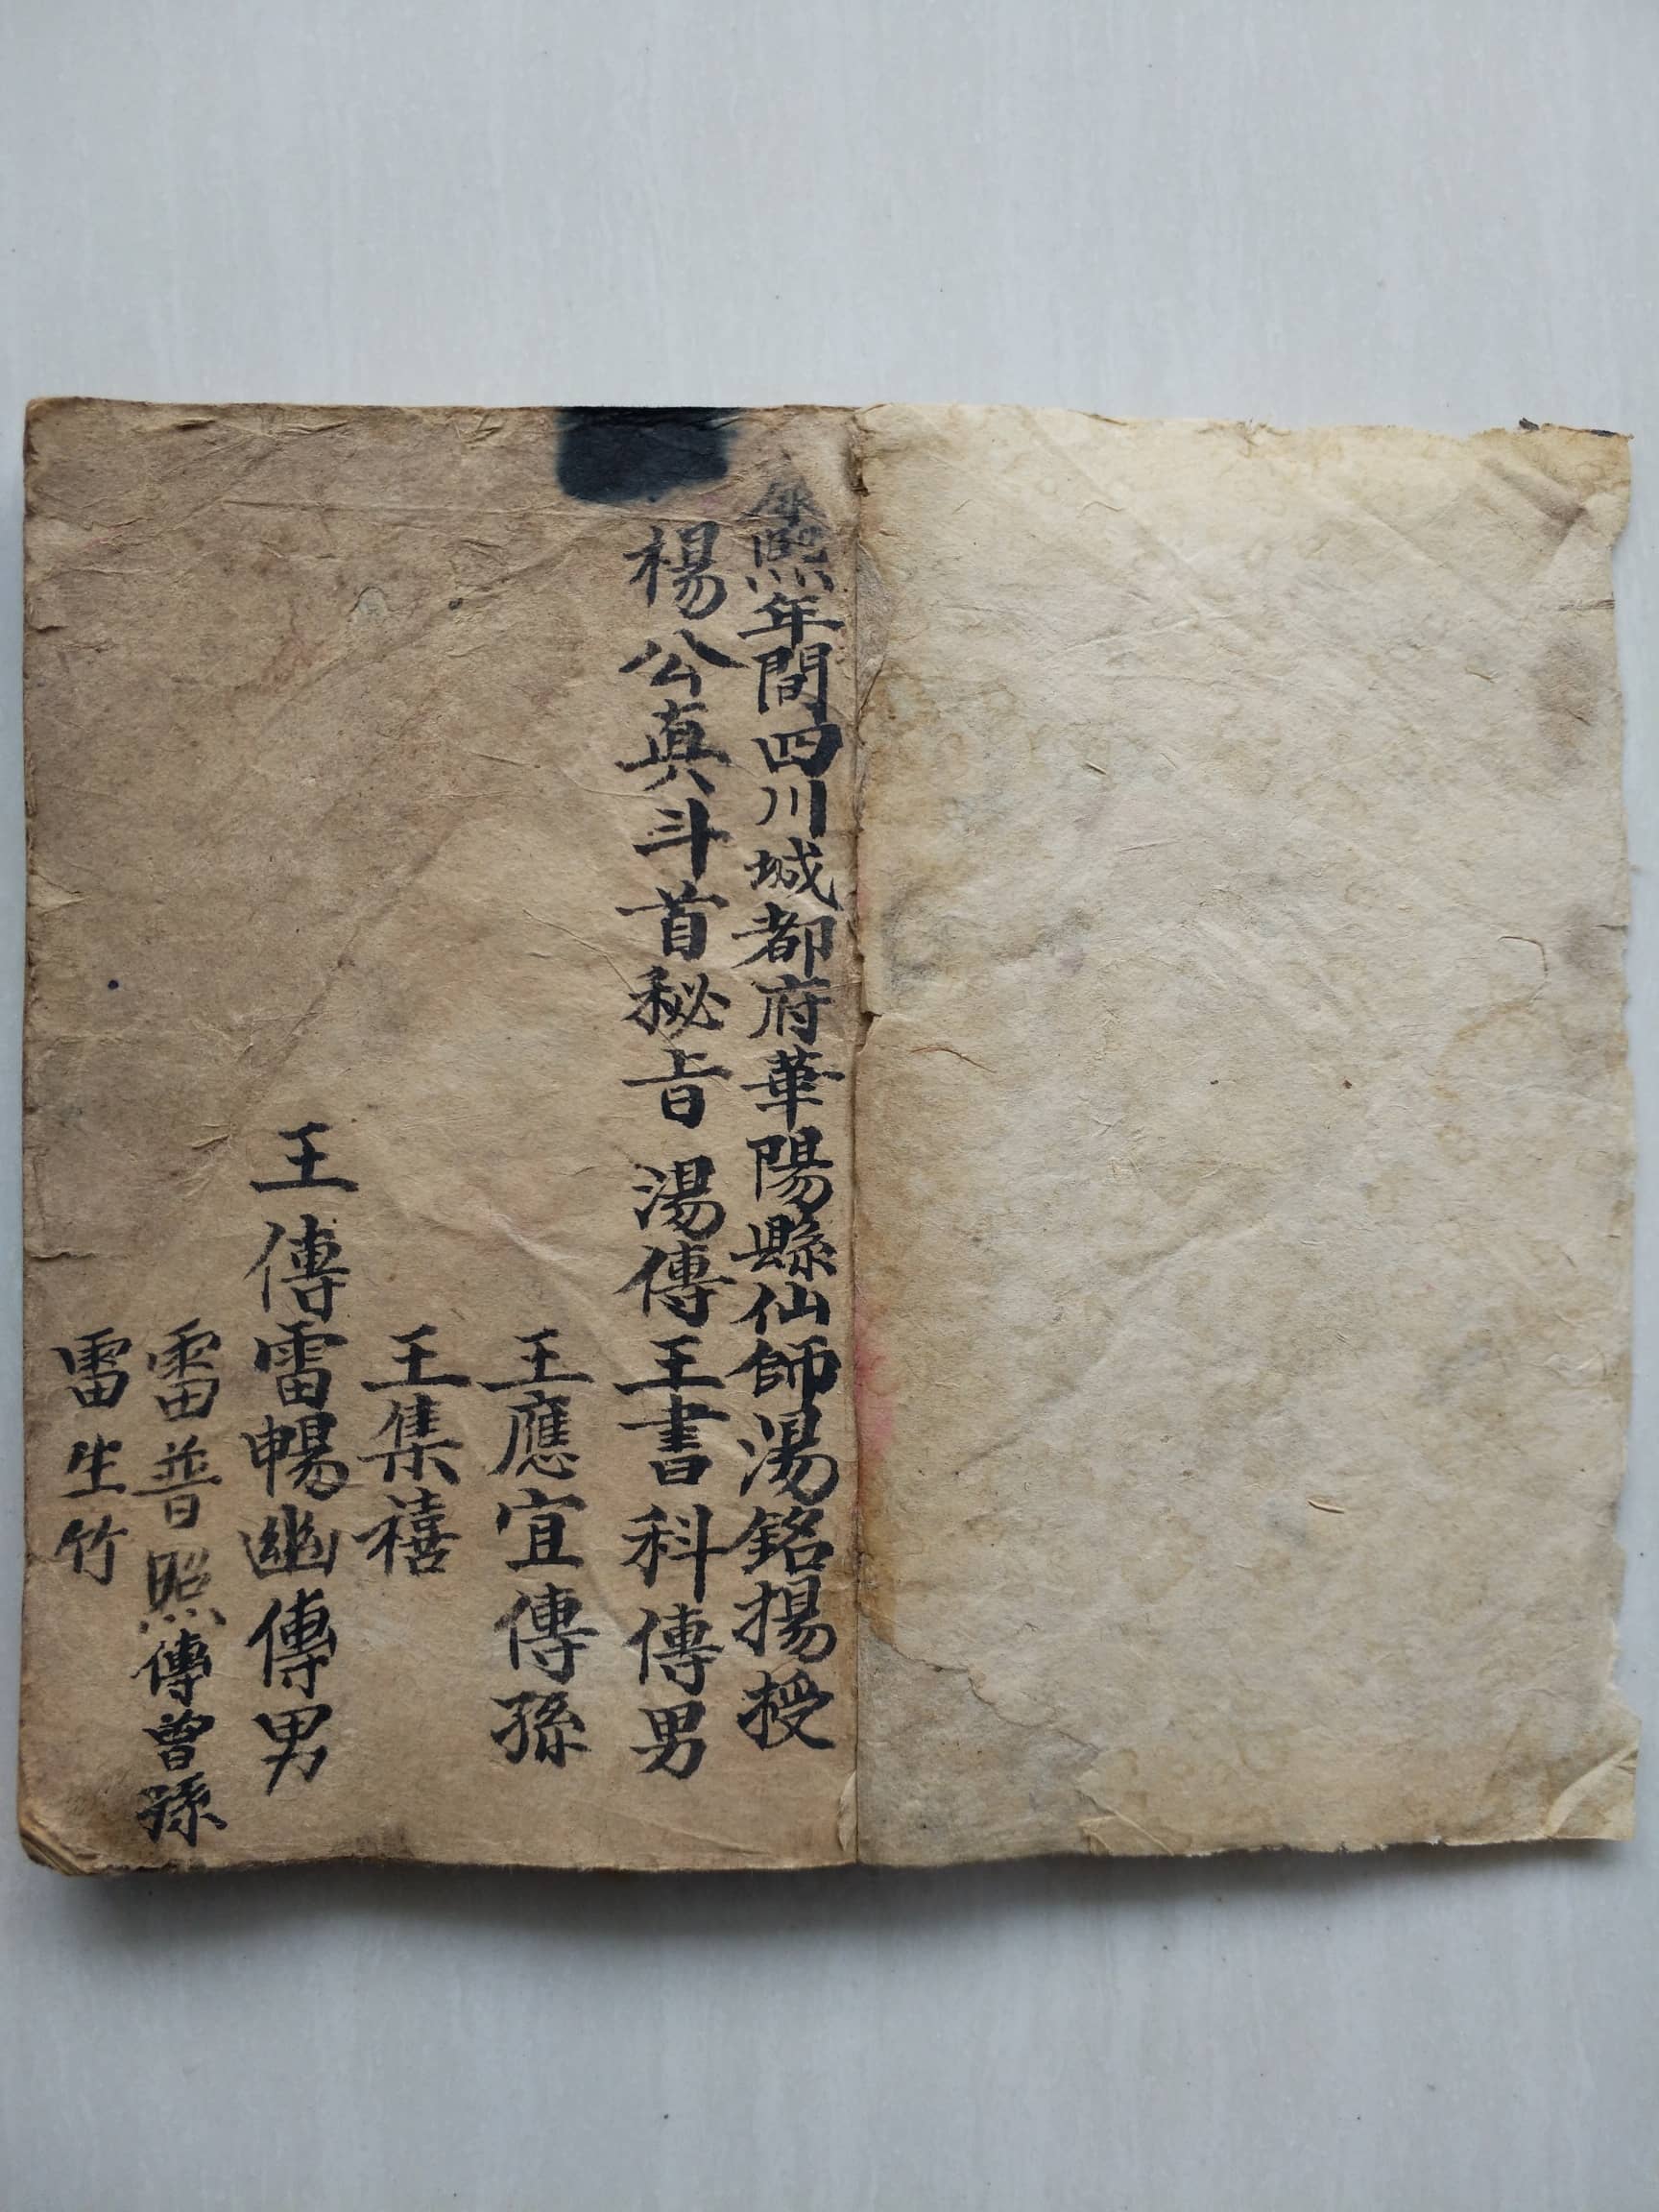 康熙年間四川城都府華陽縣仙師湯銘揚授
楊公真斗首秘旨 湯傳王書科傳男
王應宜傳孫
王集禧
王傳雷暢幽傳男
雷普照傳曾孫
雷生竹